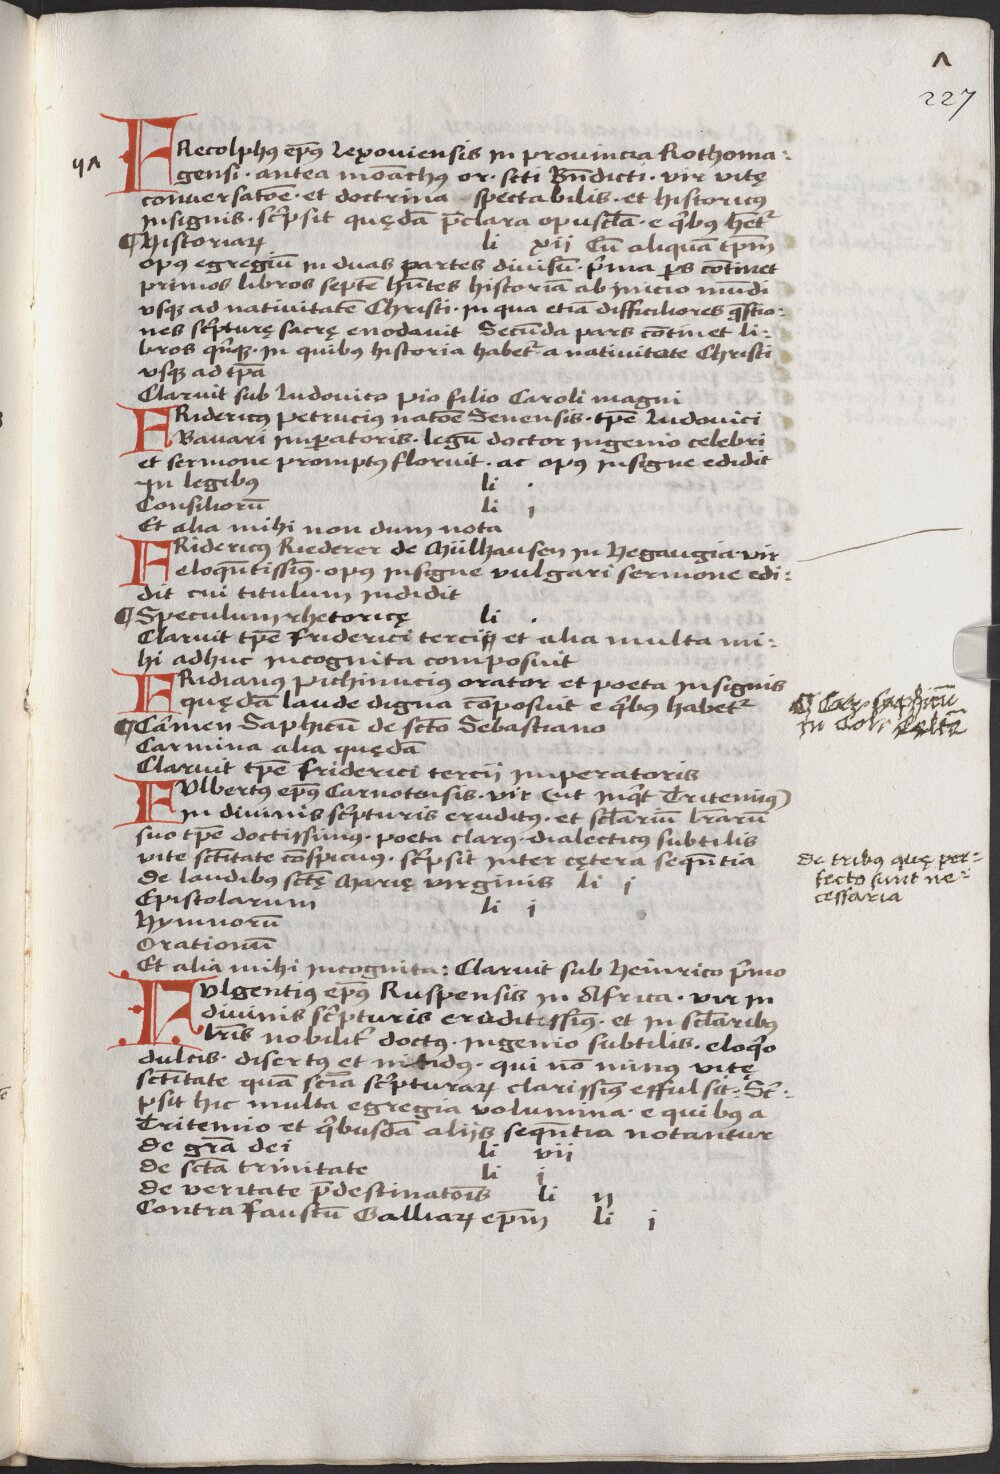 227
FRecolphꝰ ep̄ꝰ Lexouiensis in prouincia Rothoma-
gensi · antea mōachus or · scti Bn̄dicti · vir vitę
conuersatōe · et doctrina spectabilis · et historicus
insignis · sc̄psit quędā p̄clara opuscl̄a · e q̄bus het̄
¶ Historiarꝝ li xij Cū aliquā tp̄m
opꝰ egregiū in duas partes diuisū · p̄ma ps cōtinet
primos libros septē hn̄tes historiā ab inicio mūdi
vsqꝫ ad natiuitatē Christi · in qua etiā difficiliores q̄stio-
nes sc̄pturę sacrę enodauit Secūda pars cōtinet li-
bros qn̄qꝫ · in quibus historia habet̄ a natiuitate Christi
vsqꝫ ad tpā
Claruit sub Ludouico pio filio Caroli magni
FRidericꝰ petrucius natōe Senensis · tpē Ludouici
Bauari imp̄atoris · legū doctor ingenio celebri
et sermone promptꝰ floruit · ac opus insigne edidit
In legibus li .
Consiliorū li j
Et alia mihi non dum nota
FRidericꝰ Riederer de Mülhausen in Hegaugia vir
eloqn̄tissimꝰ · opꝰ insigne vulgari sermone edi-
dit cui titulum indidit
¶ Speculum rhetoricę li .
Claruit tpē friderici tercij et alia multa mi-
hi adhuc incognita composuit
FRidianꝰ pichinucius orator et poeta insignis
quędā laude digna cōposuit e q̄bus habet̄
¶ Cārmen Saphicū de sctō Sebastiano
Carmina alia quędā
Claruit tpē friderici tercij imperatoris
FVlbertꝰ ep̄ꝰ Carnotensis · vir (ut inq̄t Tritemiꝰ)
in diuinis sc̄pturis eruditꝰ · et scl̄ariū lr̄arū
suo tpē doctissimus · poeta clarꝰ · dialecticus subtilis
vite sctītate cōspicuus · sc̄psit inter cętera seqn̄tia
de tribꝰ quę per-
fecto sunt ne-
cessaria
De laudibus sctę Marię virginis li j
Epistolarum li j
Hymnorū
Orationū
Et alia mihi incognita : Claruit sub Heinrico p̄mo
FVlgentiꝰ ep̄ꝰ Ruspensis in Africa · vir in
diuinis sc̄pturis eruditissimꝰ · et in scl̄aribꝰ
lr̄is nobilit̄ doctꝰ · ingenio subtilis · eloq̄o
dulcis · disertꝰ et nitidꝰ · qui nō minus vitę
sctītate quā sciā sc̄pturarꝝ clarissimꝰ effulsit · Sc̄-
psit hic multa egregia volumina · e quibus a
Tritemio et q̄busdā alijs seqn̄tia notantur
De grā dei li vii
De sctā trinitate li j
De veritate p̄destinatōis li ij
Contra faustū Galliarꝝ ep̄m li j